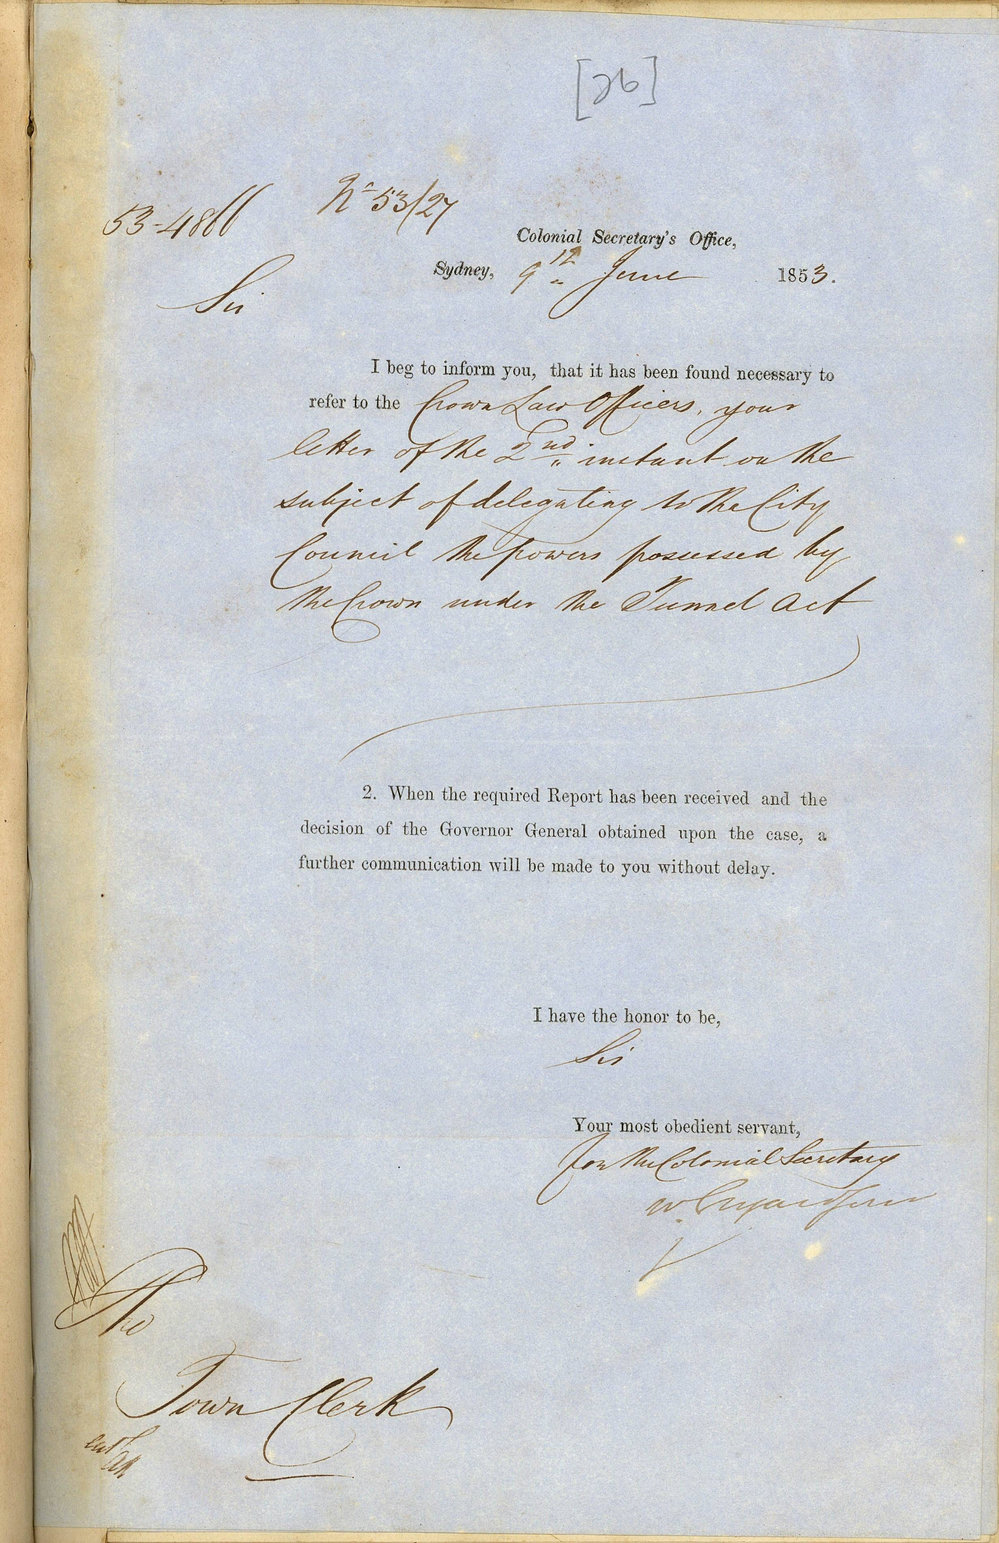 [26]
53-4866
No 53/27
Colonial Secretary's Office,
Sydney, 9th June 1853.
Sir
I beg to inform you, that it has been found necessary to
refer to the Crown Law Officers, your
letter of the 2nd instant on the
subject of delegating to the City
Council the powers possessed by
the Crown under the Tunnel Act
2. When the required Report has been received and the
decision of the Governor General obtained upon the case, a
further communication will be made to you without delay.
I have the honor to be,
Sir
Your most obedient servant,
For the Colonial Secretary
W
The
Town Clerk